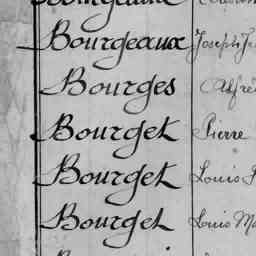 Bourgeaux Joseph
Bourges Alfre
Bourget Pierre
Bourget Louis
Bourget Louis M